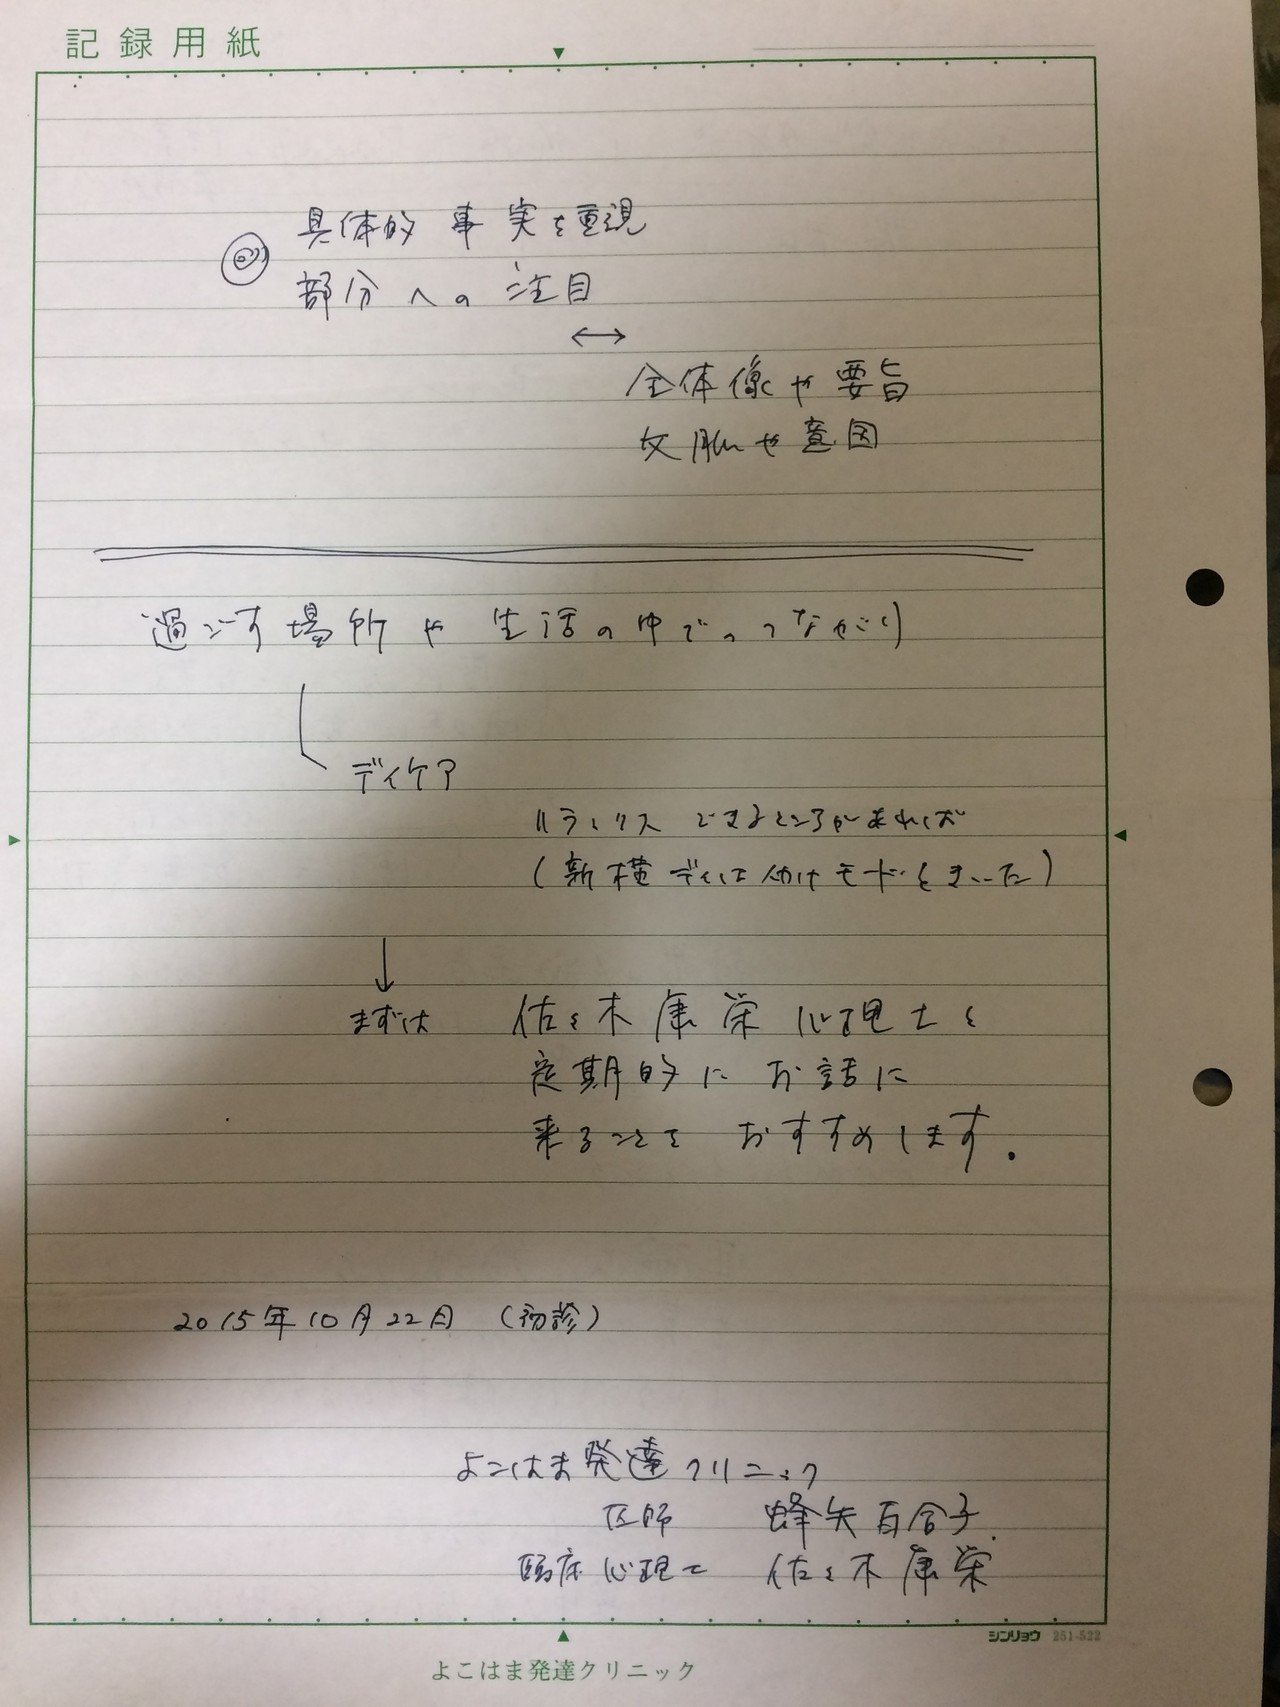 記録用紙
具体的事実を重視
◎ 部分への注目
↔
全体像や要旨
文脈や意図
過ごす場所や生活の中でのつながり
デイケア
リラックスできるところがあれば
(新横デイは仕事モード
↓
まずは 佐々木康栄心理士と
定期的にお話に
来ることをおすすめします.
2015年10月22日 (初診)
よこはま発達クリニック
医師 蜂矢百合子
臨床心理士 佐々木康栄
シンリョウ 251-522
よこはま発達クリニック